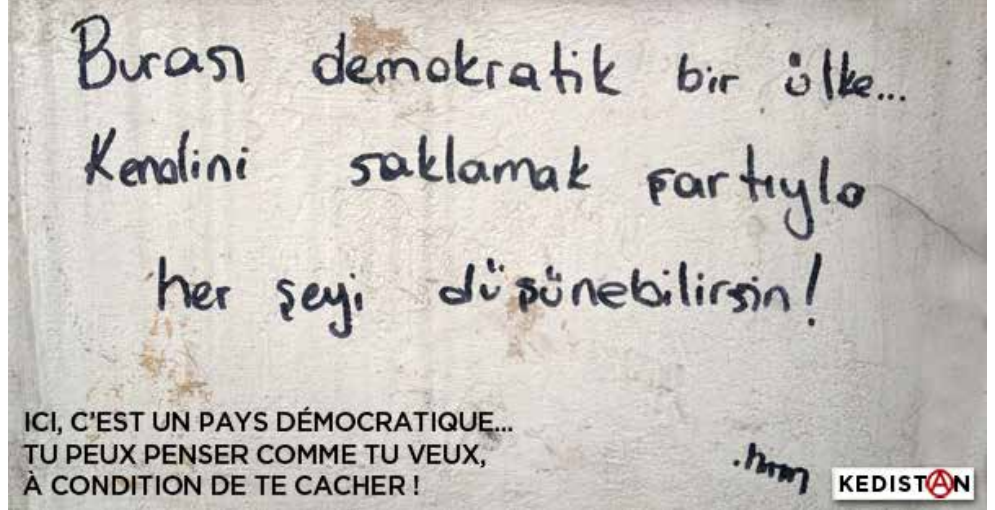 Burası demokratik bir ülke...
Kendini saklamak şartıyla
her şeyi düşünebilirsin!
ICI, C'EST UN PAYS DÉMOCRATIQUE...
TU PEUX PENSER COMME TU VEUX,
À CONDITION DE TE CACHER !
KEDISTAN